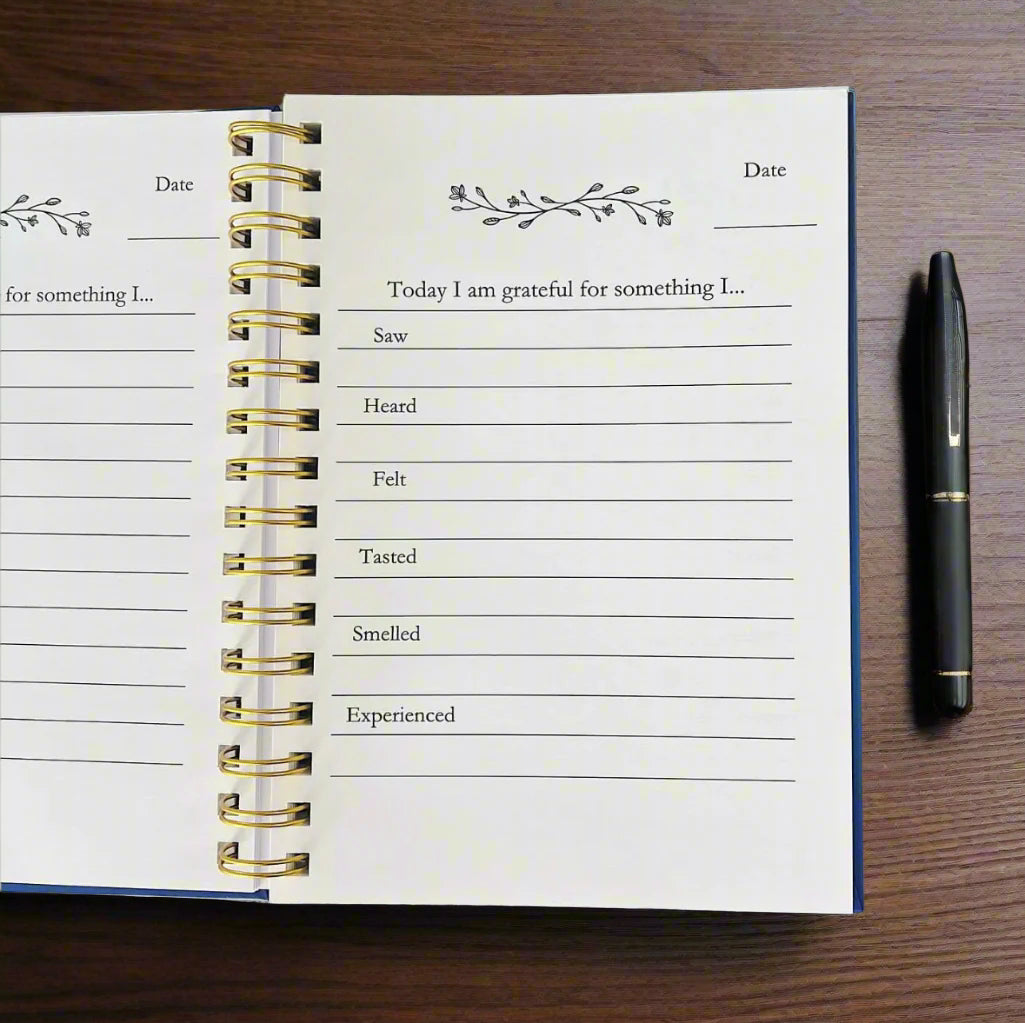 Date
for something I...
Date
Today I am grateful for something I...
Saw
Heard
Felt
Tasted
Smelled
Experienced